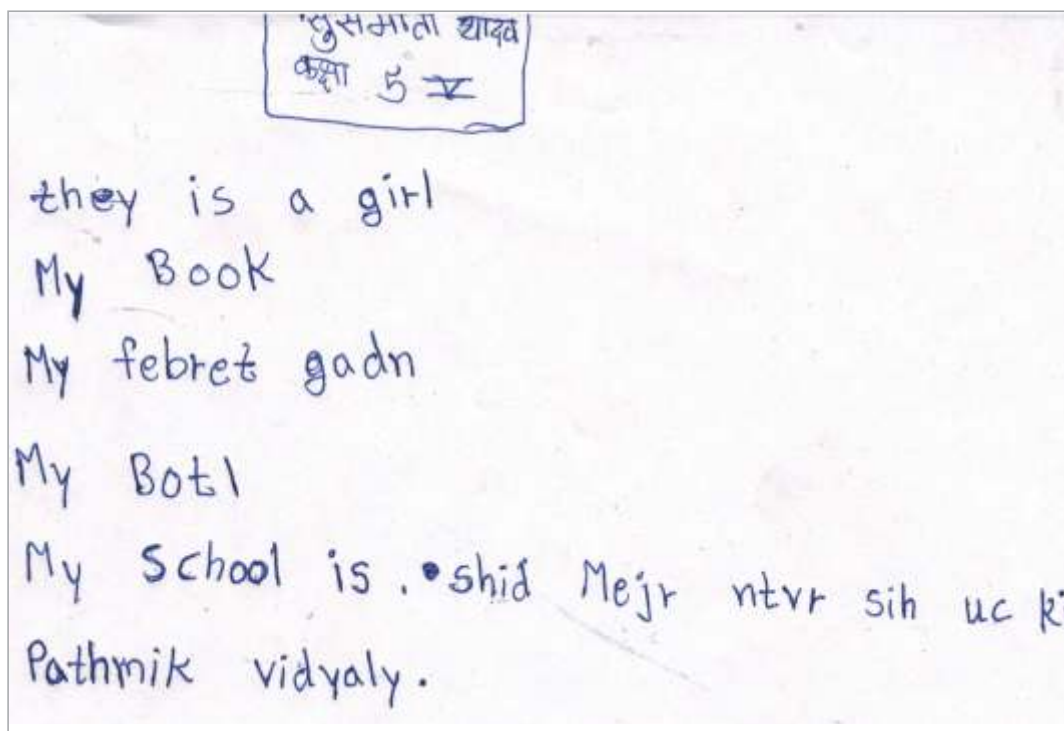 सुसमाता यादव
कक्षा 5 V
they is a girl
My Book
My febret gadn
My Botl
My School is . shid Mejr ntvr sih uc
Pathmik vidyaly.